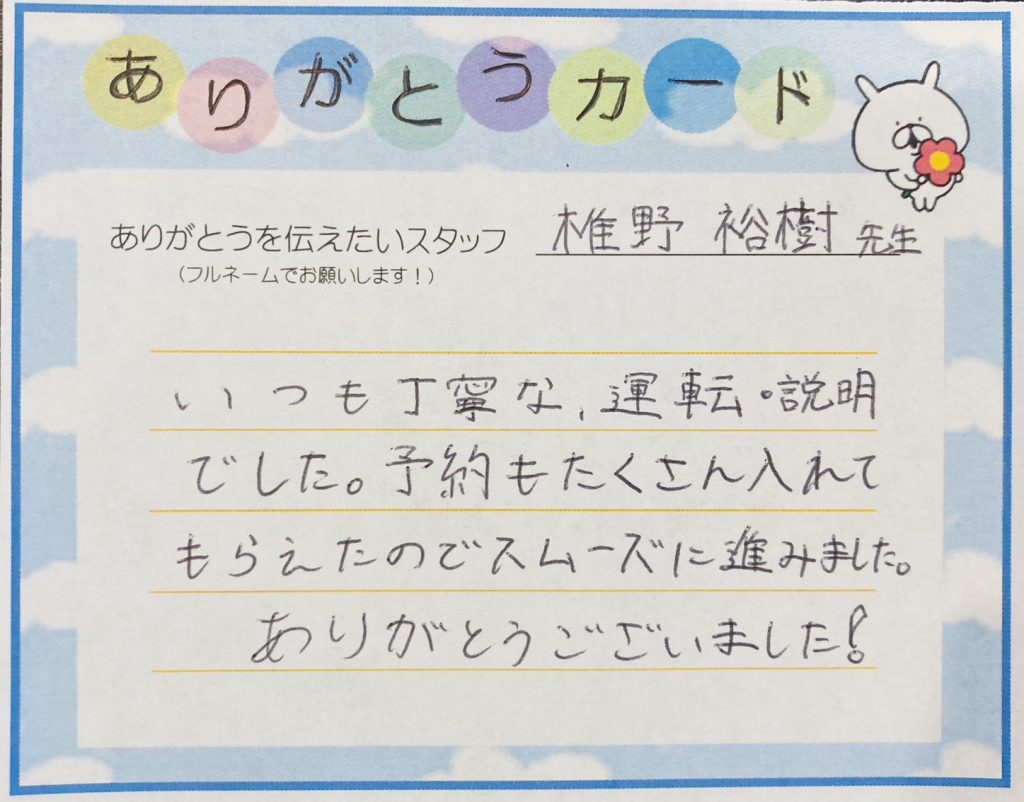 ありがとうカード
ありがとうを伝えたいスタッフ 椎野 裕樹 先生
(フルネームでお願いします!)
いつも丁寧な、運転・説明
でした。予約もたくさん入れて
もらえたのでスムーズに進みました。
ありがとうございました!